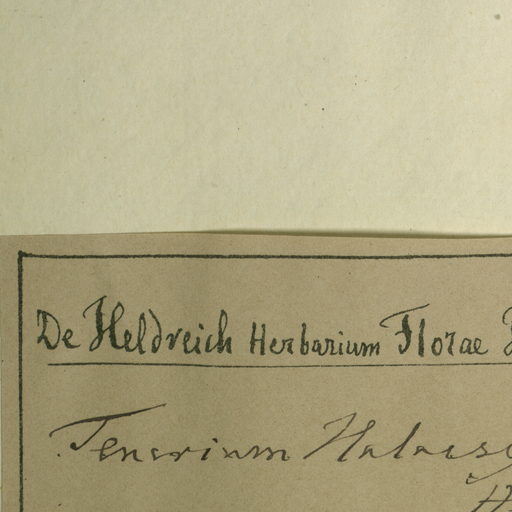 De Heldreich Herbarium Florae
Teucrium